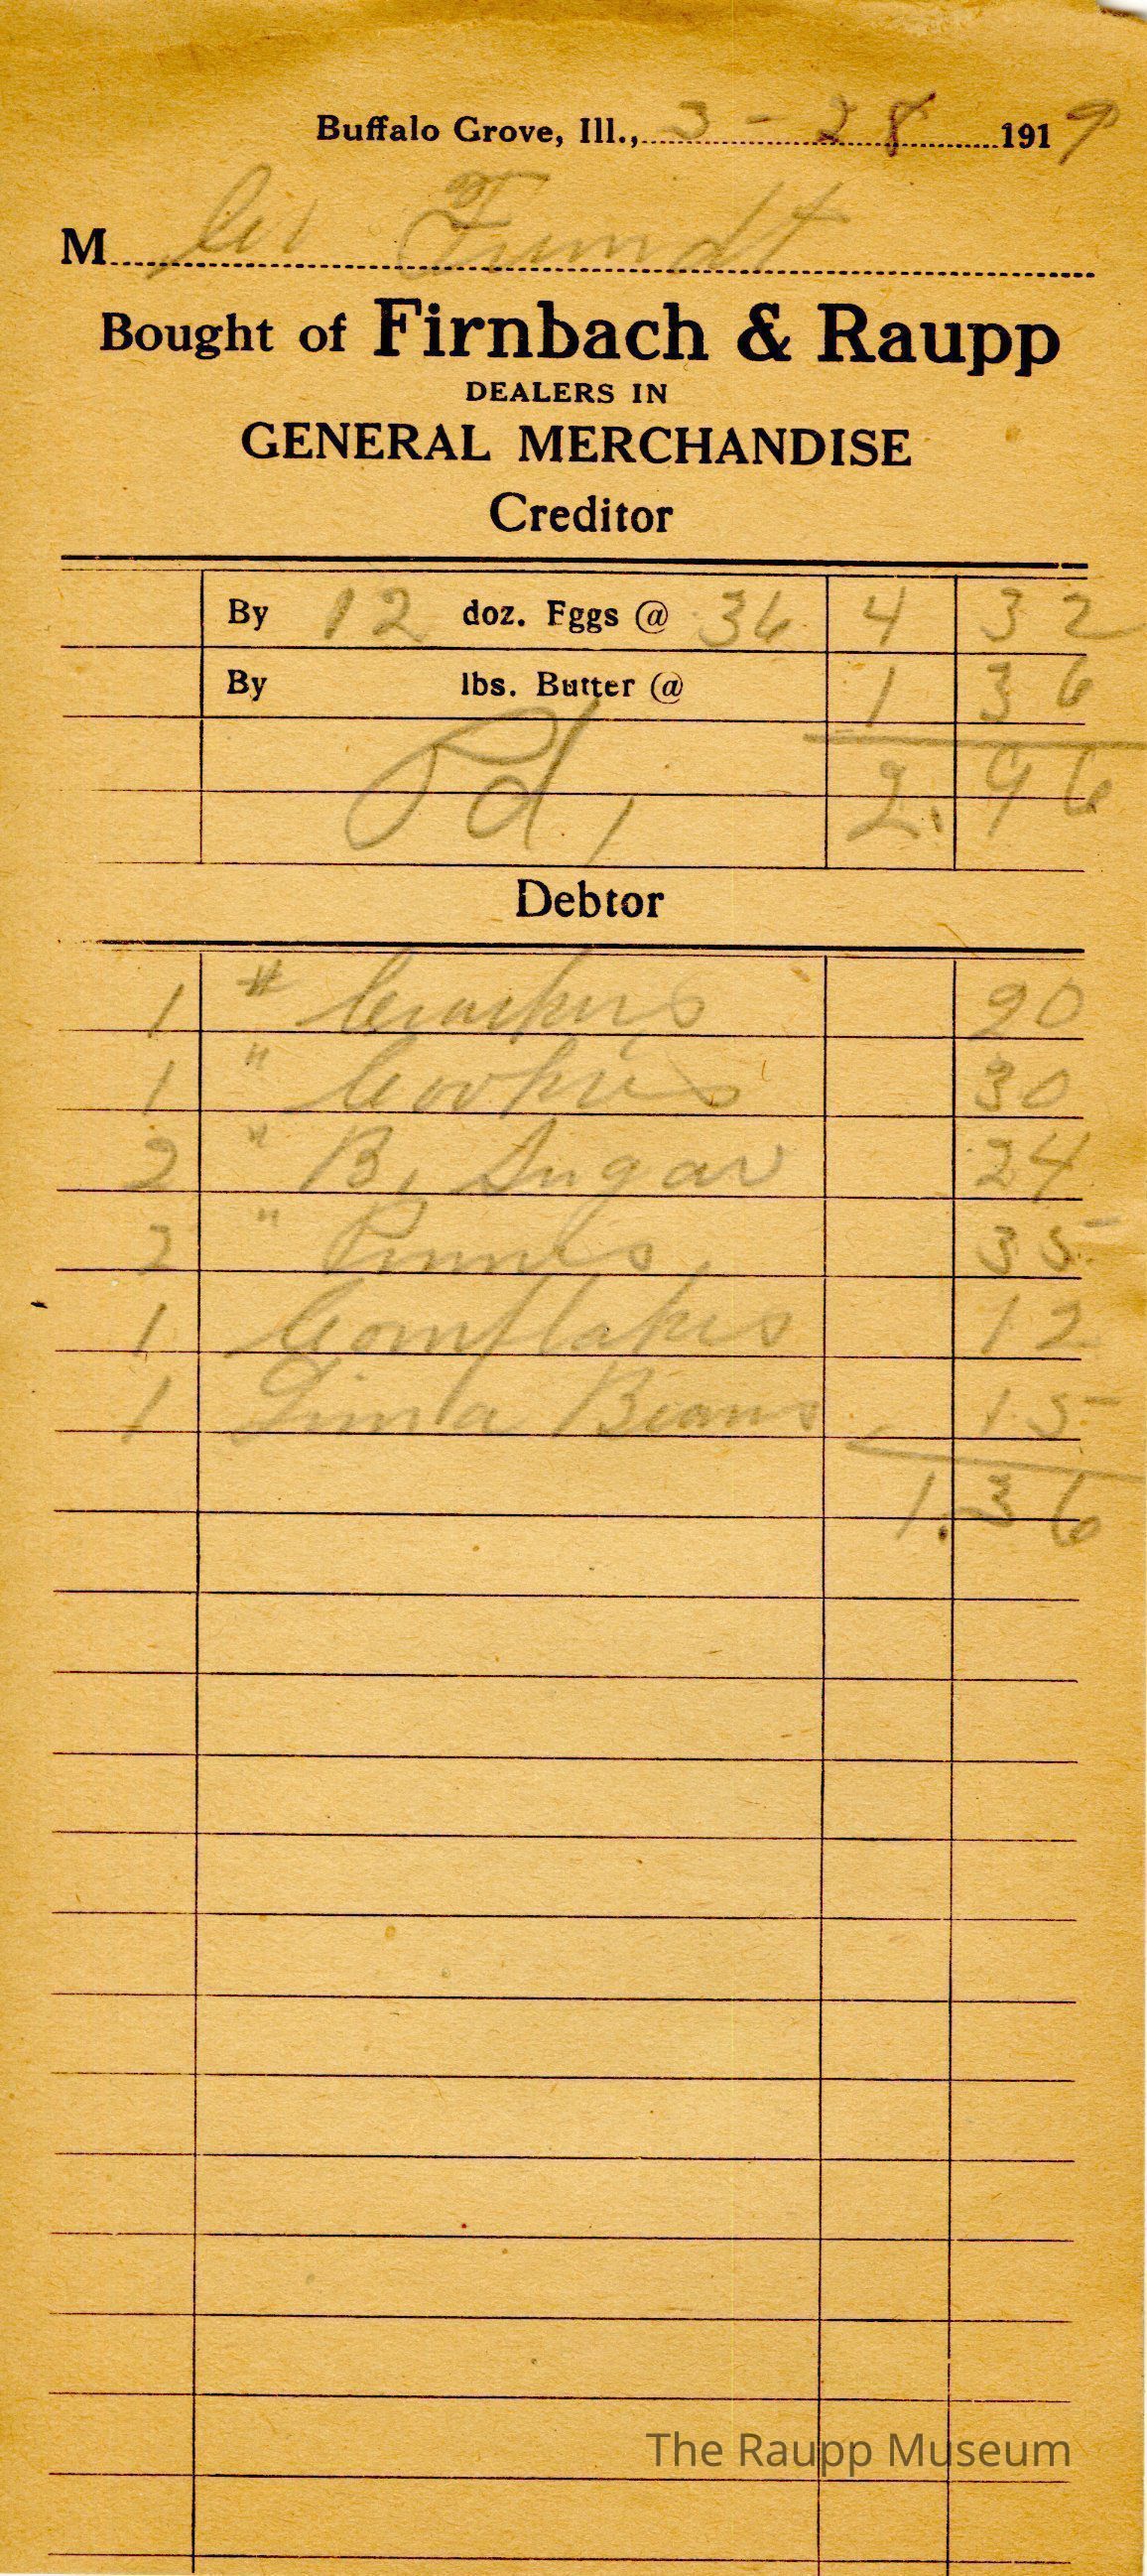 Buffalo Grove, Ill., 3 - 28 1919
M
Bought of Firnbach & Raupp
DEALERS IN
GENERAL MERCHANDISE
Creditor
By 12 doz. Eggs @ 36 4 32
By lbs. Butter @ 1 36
Pd, 2.96
Debtor
1 # Crackers 20
1 " Cookies 30
2 " B, Sugar 24
2 " Prunes 35
1 Cornflakes 12
1 Lima Beans 15
1.36
The Raupp Museum